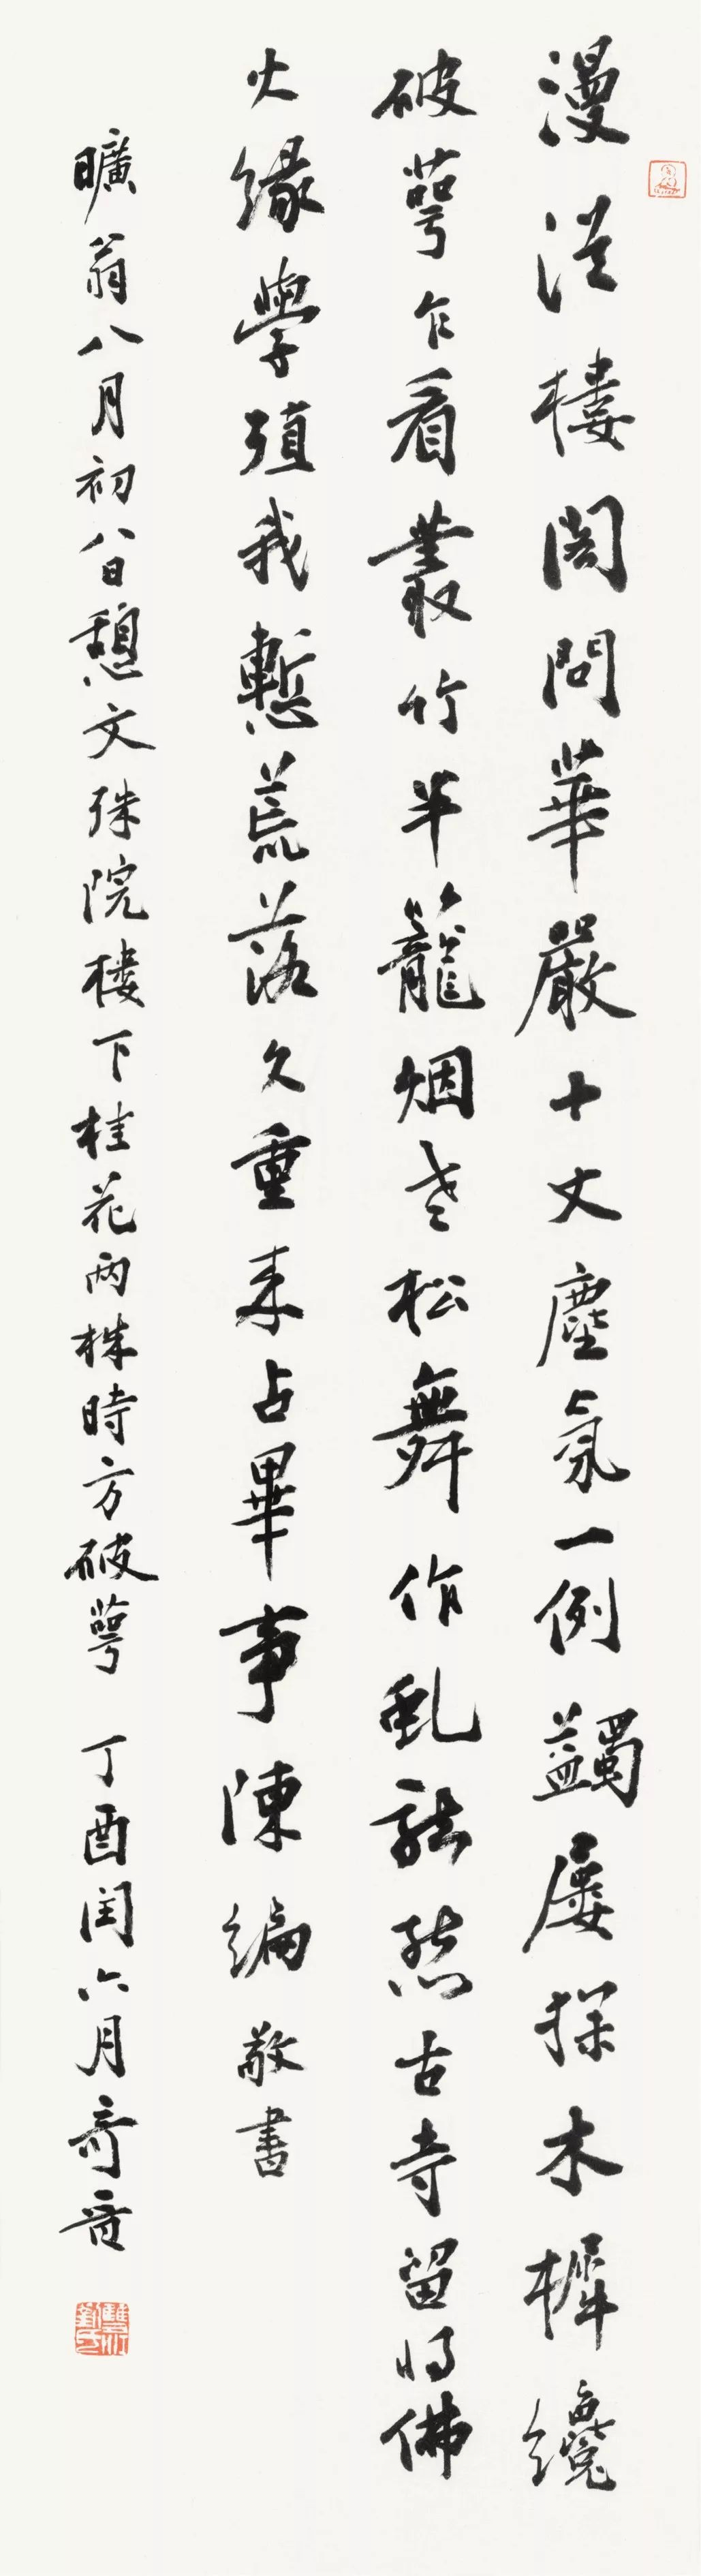 漫從樓閣問華嚴十丈塵氛一例蠲屢探木樨纔
破萼乍看叢竹半籠烟老松舞作虬龍態古寺留將佛
火緣學殖我慙荒落久重来占畢事陳編敬書
曠翁八月初八日憩文殊院樓下桂花兩株時方破萼 丁酉閏六月奇晉